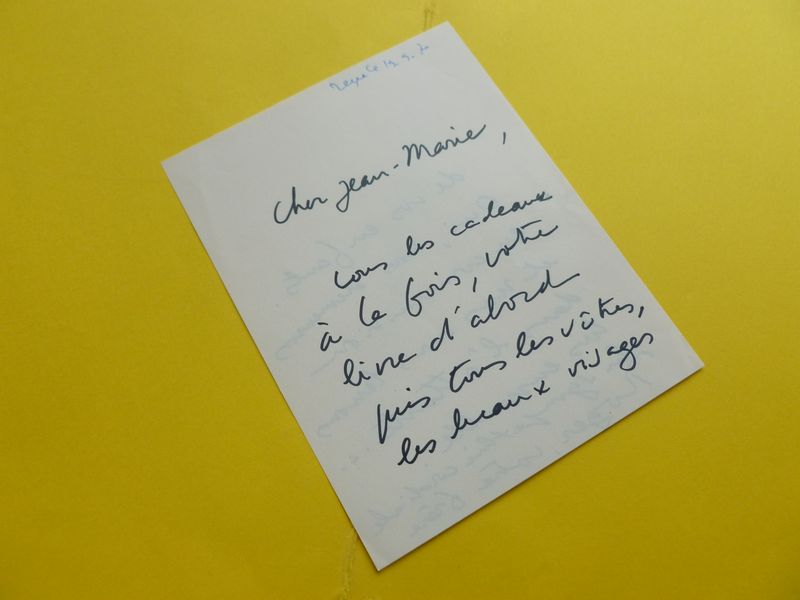 Reçu le 19.9.7
Cher Jean-Marie,
tous les cadeaux
à la fois, votre
livre d'abord
puis tous les vôtres,
les beaux visages